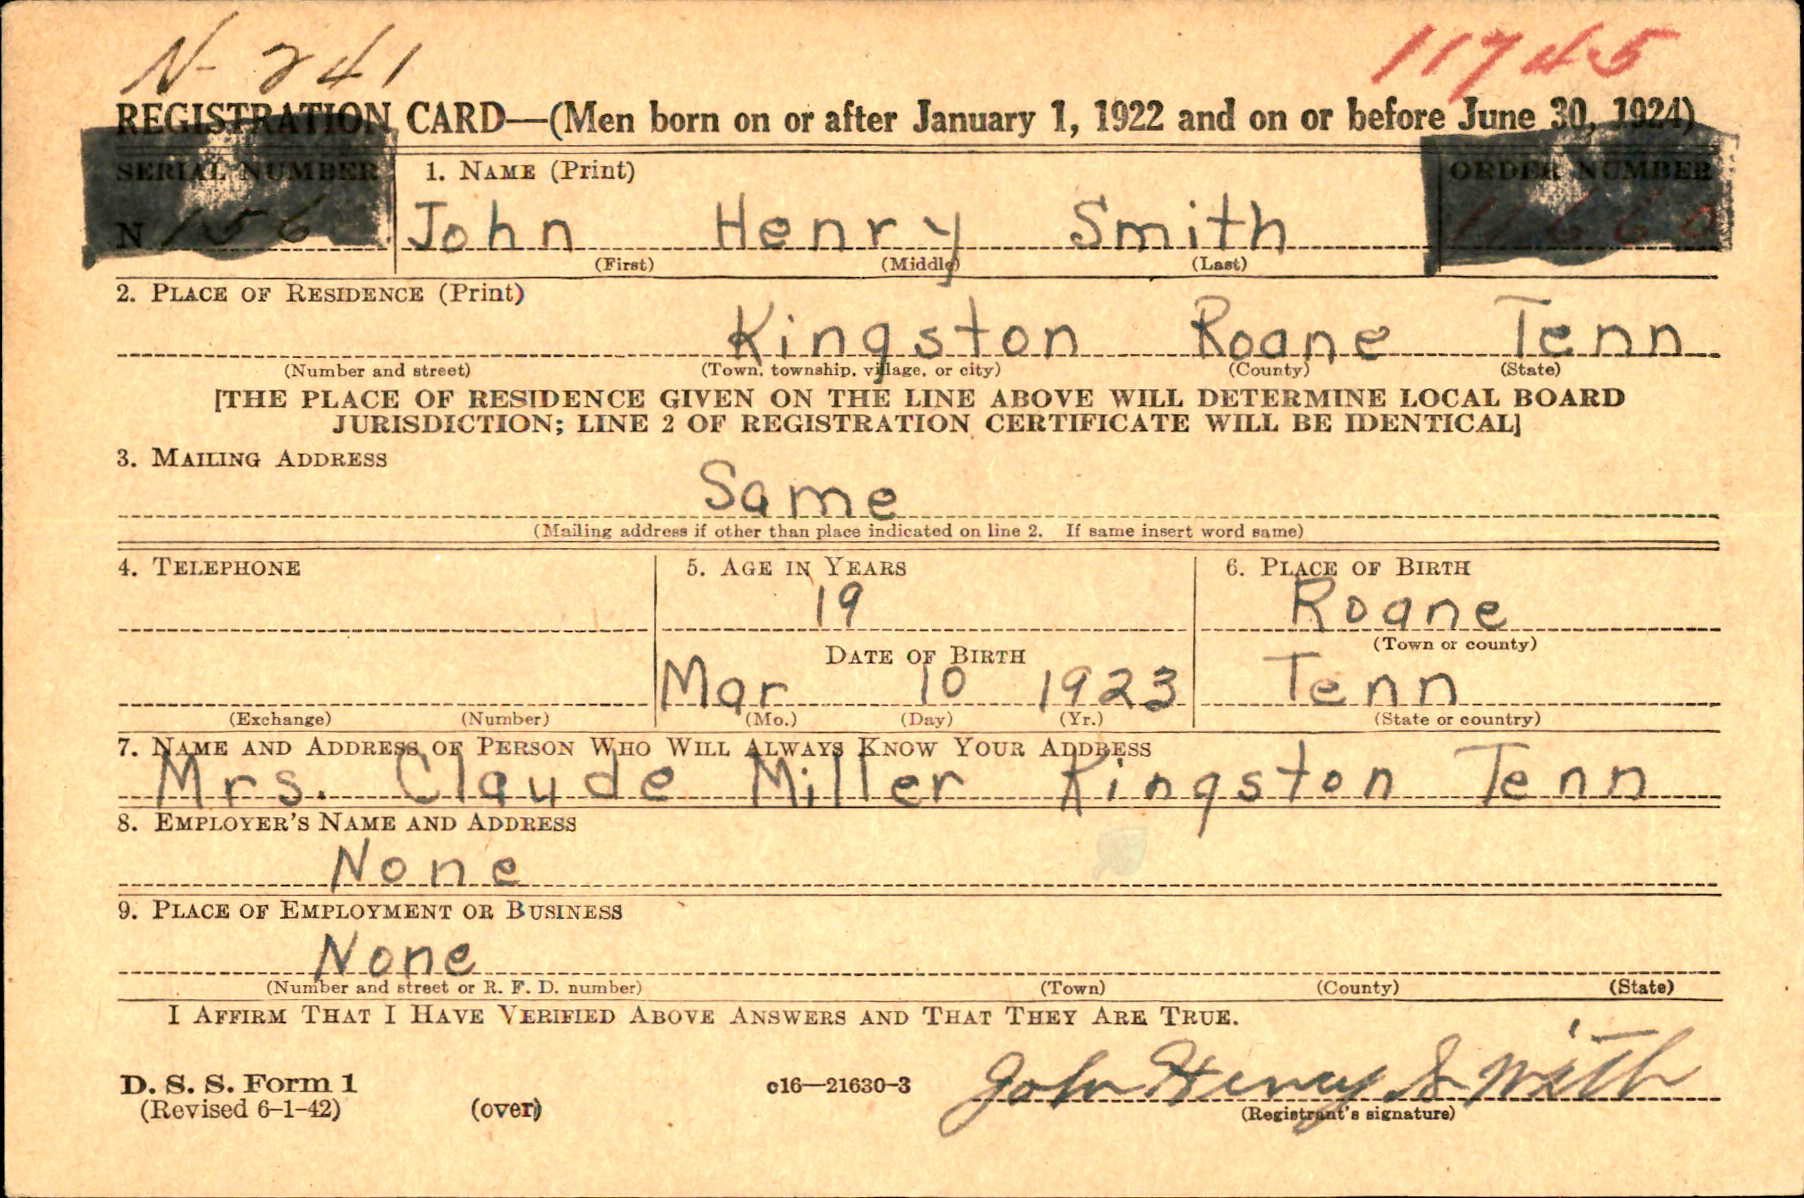 N-241 11745
REGISTRATION CARD—(Men born on or after January 1, 1922 and on or before June 30, 1924)
SERIAL NUMBER 1. NAME (Print) ORDER NUMBER
N 156 John Henry Smith 11660
(First) (Middle) (Last)
2. PLACE OF RESIDENCE (Print)
Kingston Roane Tenn
(Number and street) (Town, township, village, or city) (County) (State)
[THE PLACE OF RESIDENCE GIVEN ON THE LINE ABOVE WILL DETERMINE LOCAL BOARD
JURISDICTION; LINE 2 OF REGISTRATION CERTIFICATE WILL BE IDENTICAL]
3. MAILING ADDRESS
Same
(Mailing address if other than place indicated on line 2. If same insert word same)
4. TELEPHONE 5. AGE IN YEARS 6. PLACE OF BIRTH
19 Roane
(Town or county)
DATE OF BIRTH
Mar 10 1923 Tenn
(Exchange) (Number) (Mo.) (Day) (Yr.) (State or country)
7. NAME AND ADDRESS OF PERSON WHO WILL ALWAYS KNOW YOUR ADDRESS
Mrs. Claude Miller Kingston Tenn
8. EMPLOYER'S NAME AND ADDRESS
None
9. PLACE OF EMPLOYMENT OR BUSINESS
None
(Number and street or R. F. D. number) (Town) (County) (State)
I AFFIRM THAT I HAVE VERIFIED ABOVE ANSWERS AND THAT THEY ARE TRUE.
D. S. S. Form 1 c16—21630-3 John Henry Smith
(Revised 6-1-42) (over) (Registrant's signature)